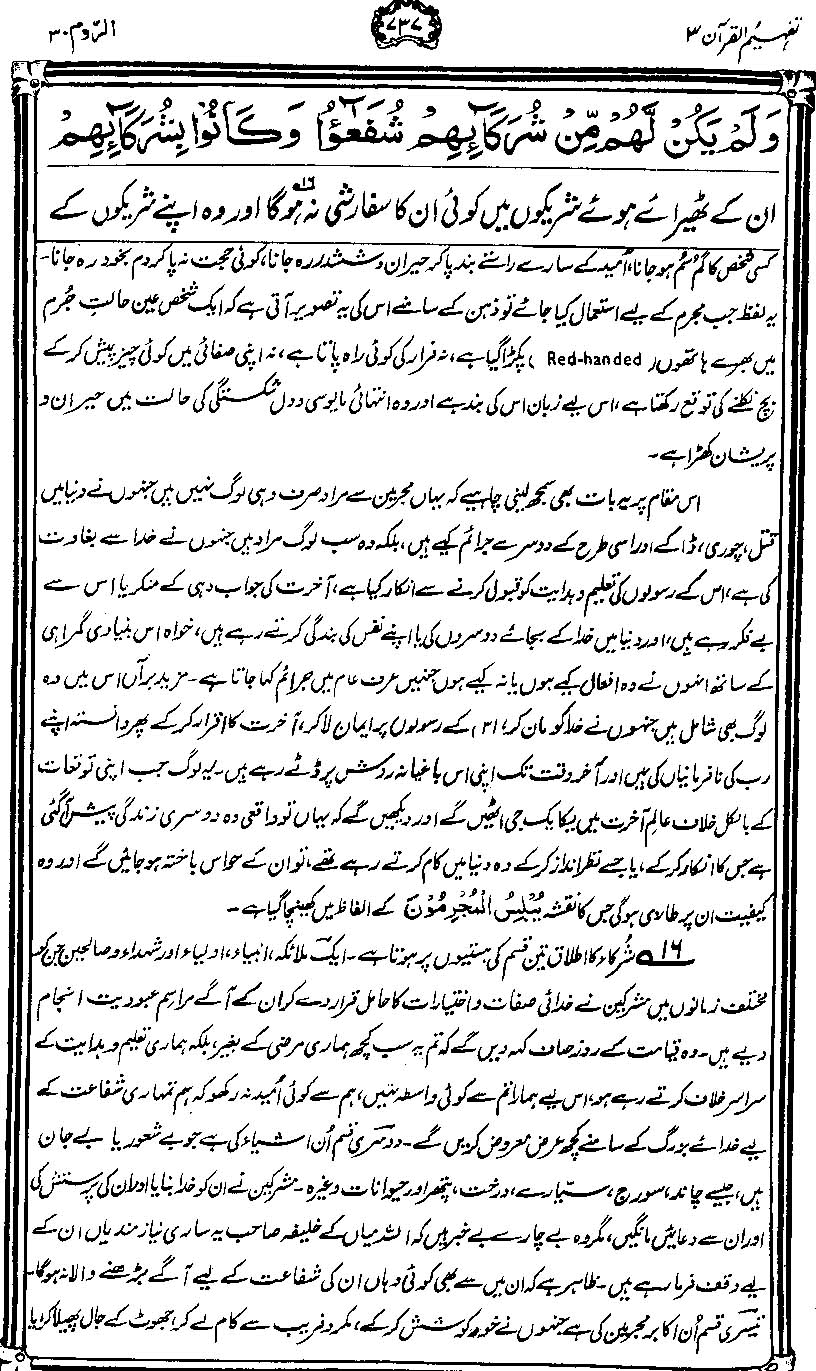 تفہیم القرآن ۳
۷۳۷
الرّوم ۳۰
وَلَمْ يَكُنْ لَّهُمْ مِّنْ شُرَكَآئِهِمْ شُفَعٰٓؤُا وَكَانُوْا بِشُرَكَآئِهِمْ
ان کے ٹھیرائے ہوئے شریکوں میں کوئی ان کا سفارشی نہ ہوگا۱۶ اور وہ اپنے شریکوں کے
کسی شخص کا گم سُم ہو جانا، اُمید کے سارے راستے بند پا کر حیران و ششدر رہ جانا، کوئی حجت نہ پا کر دم بخود رہ جانا۔
یہ لفظ جب مجرم کے لیے استعمال کیا جائے تو ذہن کے سامنے اس کی یہ تصویر آتی ہے کہ ایک شخص عین حالتِ جُرم
میں بھرے ہاتھوں (Red-handed) پکڑا گیا ہے، نہ فرار کی کوئی راہ پاتا ہے، نہ اپنی صفائی میں کوئی چیز پیش کر کے
بچ نکلنے کی توقع رکھتا ہے، اس لیے زبان اس کی بند ہے اور وہ انتہائی مایوسی و دل شکستگی کی حالت میں حیران و
پریشان کھڑا ہے۔
اس مقام پر یہ بات بھی سمجھ لینی چاہیے کہ یہاں مجرمین سے مراد صرف وہی لوگ نہیں ہیں جنہوں نے دنیا میں
قتل، چوری، ڈاکے اور اسی طرح کے دوسرے جرائم کیے ہیں، بلکہ وہ سب لوگ مراد ہیں جنہوں نے خدا سے بغاوت
کی ہے، اس کے رسولوں کی تعلیم و ہدایت کو قبول کرنے سے انکار کیا ہے، آخرت کی جواب دہی کے منکر یا اس سے
بے فکر رہے ہیں، اور دنیا میں خدا کے بجائے دوسروں کی یا اپنے نفس کی بندگی کرتے رہے ہیں، خواہ اس بنیادی گمراہی
کے ساتھ انہوں نے وہ افعال کیے ہوں یا نہ کیے ہوں جنہیں عرفِ عام میں جرائم کہا جاتا ہے۔ مزید برآں اس میں وہ
لوگ بھی شامل ہیں جنہوں نے خدا کو مان کر، اس کے رسولوں پر ایمان لا کر، آخرت کا اقرار کر کے پھر دانستہ اپنے
رب کی نافرمانیاں کی ہیں اور آخر وقت تک اپنی اس باغیانہ روش پر ڈٹے رہے ہیں۔ یہ لوگ جب اپنی توقعات
کے بالکل خلاف عالمِ آخرت میں یکایک جی اٹھیں گے اور دیکھیں گے کہ یہاں تو واقعی وہ دوسری زندگی پیش آ گئی
ہے جس کا انکار کر کے، یا جسے نظر انداز کر کے وہ دنیا میں کام کرتے رہے تھے، تو ان کے حواس باختہ ہو جائیں گے اور وہ
کیفیت ان پر طاری ہوگی جس کا نقشہ يُبْلِسُ الْمُجْرِمُوْنَ کے الفاظ میں کھینچا گیا ہے۔
۱۶ شُرکاء کا اطلاق تین قسم کی ہستیوں پر ہوتا ہے۔ ایک ملائکہ، انبیاء، اولیاء اور شہداء و صالحین جن کو
مختلف زمانوں میں مشرکین نے خدائی صفات و اختیارات کا حامل قرار دے کر ان کے آگے مراسم عبودیت انجام
دیے ہیں۔ وہ قیامت کے روز صاف کہہ دیں گے کہ تم یہ سب کچھ ہماری مرضی کے بغیر، بلکہ ہماری تعلیم و ہدایت کے
سراسر خلاف کرتے رہے ہو، اس لیے ہمارا تم سے کوئی واسطہ نہیں، ہم سے کوئی اُمید نہ رکھو کہ ہم تمہاری شفاعت کے
لیے خدائے بزرگ کے سامنے کچھ عرض معروض کریں گے۔ دوسری قسم اُن اشیاء کی ہے جو بے شعور یا بے جان
ہیں، جیسے چاند، سورج، سیّارے، درخت، پتھر اور حیوانات وغیرہ۔ مشرکین نے ان کو خدا بنایا اور ان کی پرستش کی
اور ان سے دعائیں مانگیں، مگر وہ بے چارے بے خبر ہیں کہ اللہ میاں کے خلیفہ صاحب یہ ساری نیازمندیاں ان کے
لیے وقف فرما رہے ہیں۔ ظاہر ہے کہ ان میں سے بھی کوئی وہاں ان کی شفاعت کے لیے آگے بڑھنے والا نہ ہوگا۔
تیسری قسم اُن اکابر مجرمین کی ہے جنہوں نے خود کوشش کر کے، مکر و فریب سے کام لے کر، جھوٹ کے جال پھیلا کر یا